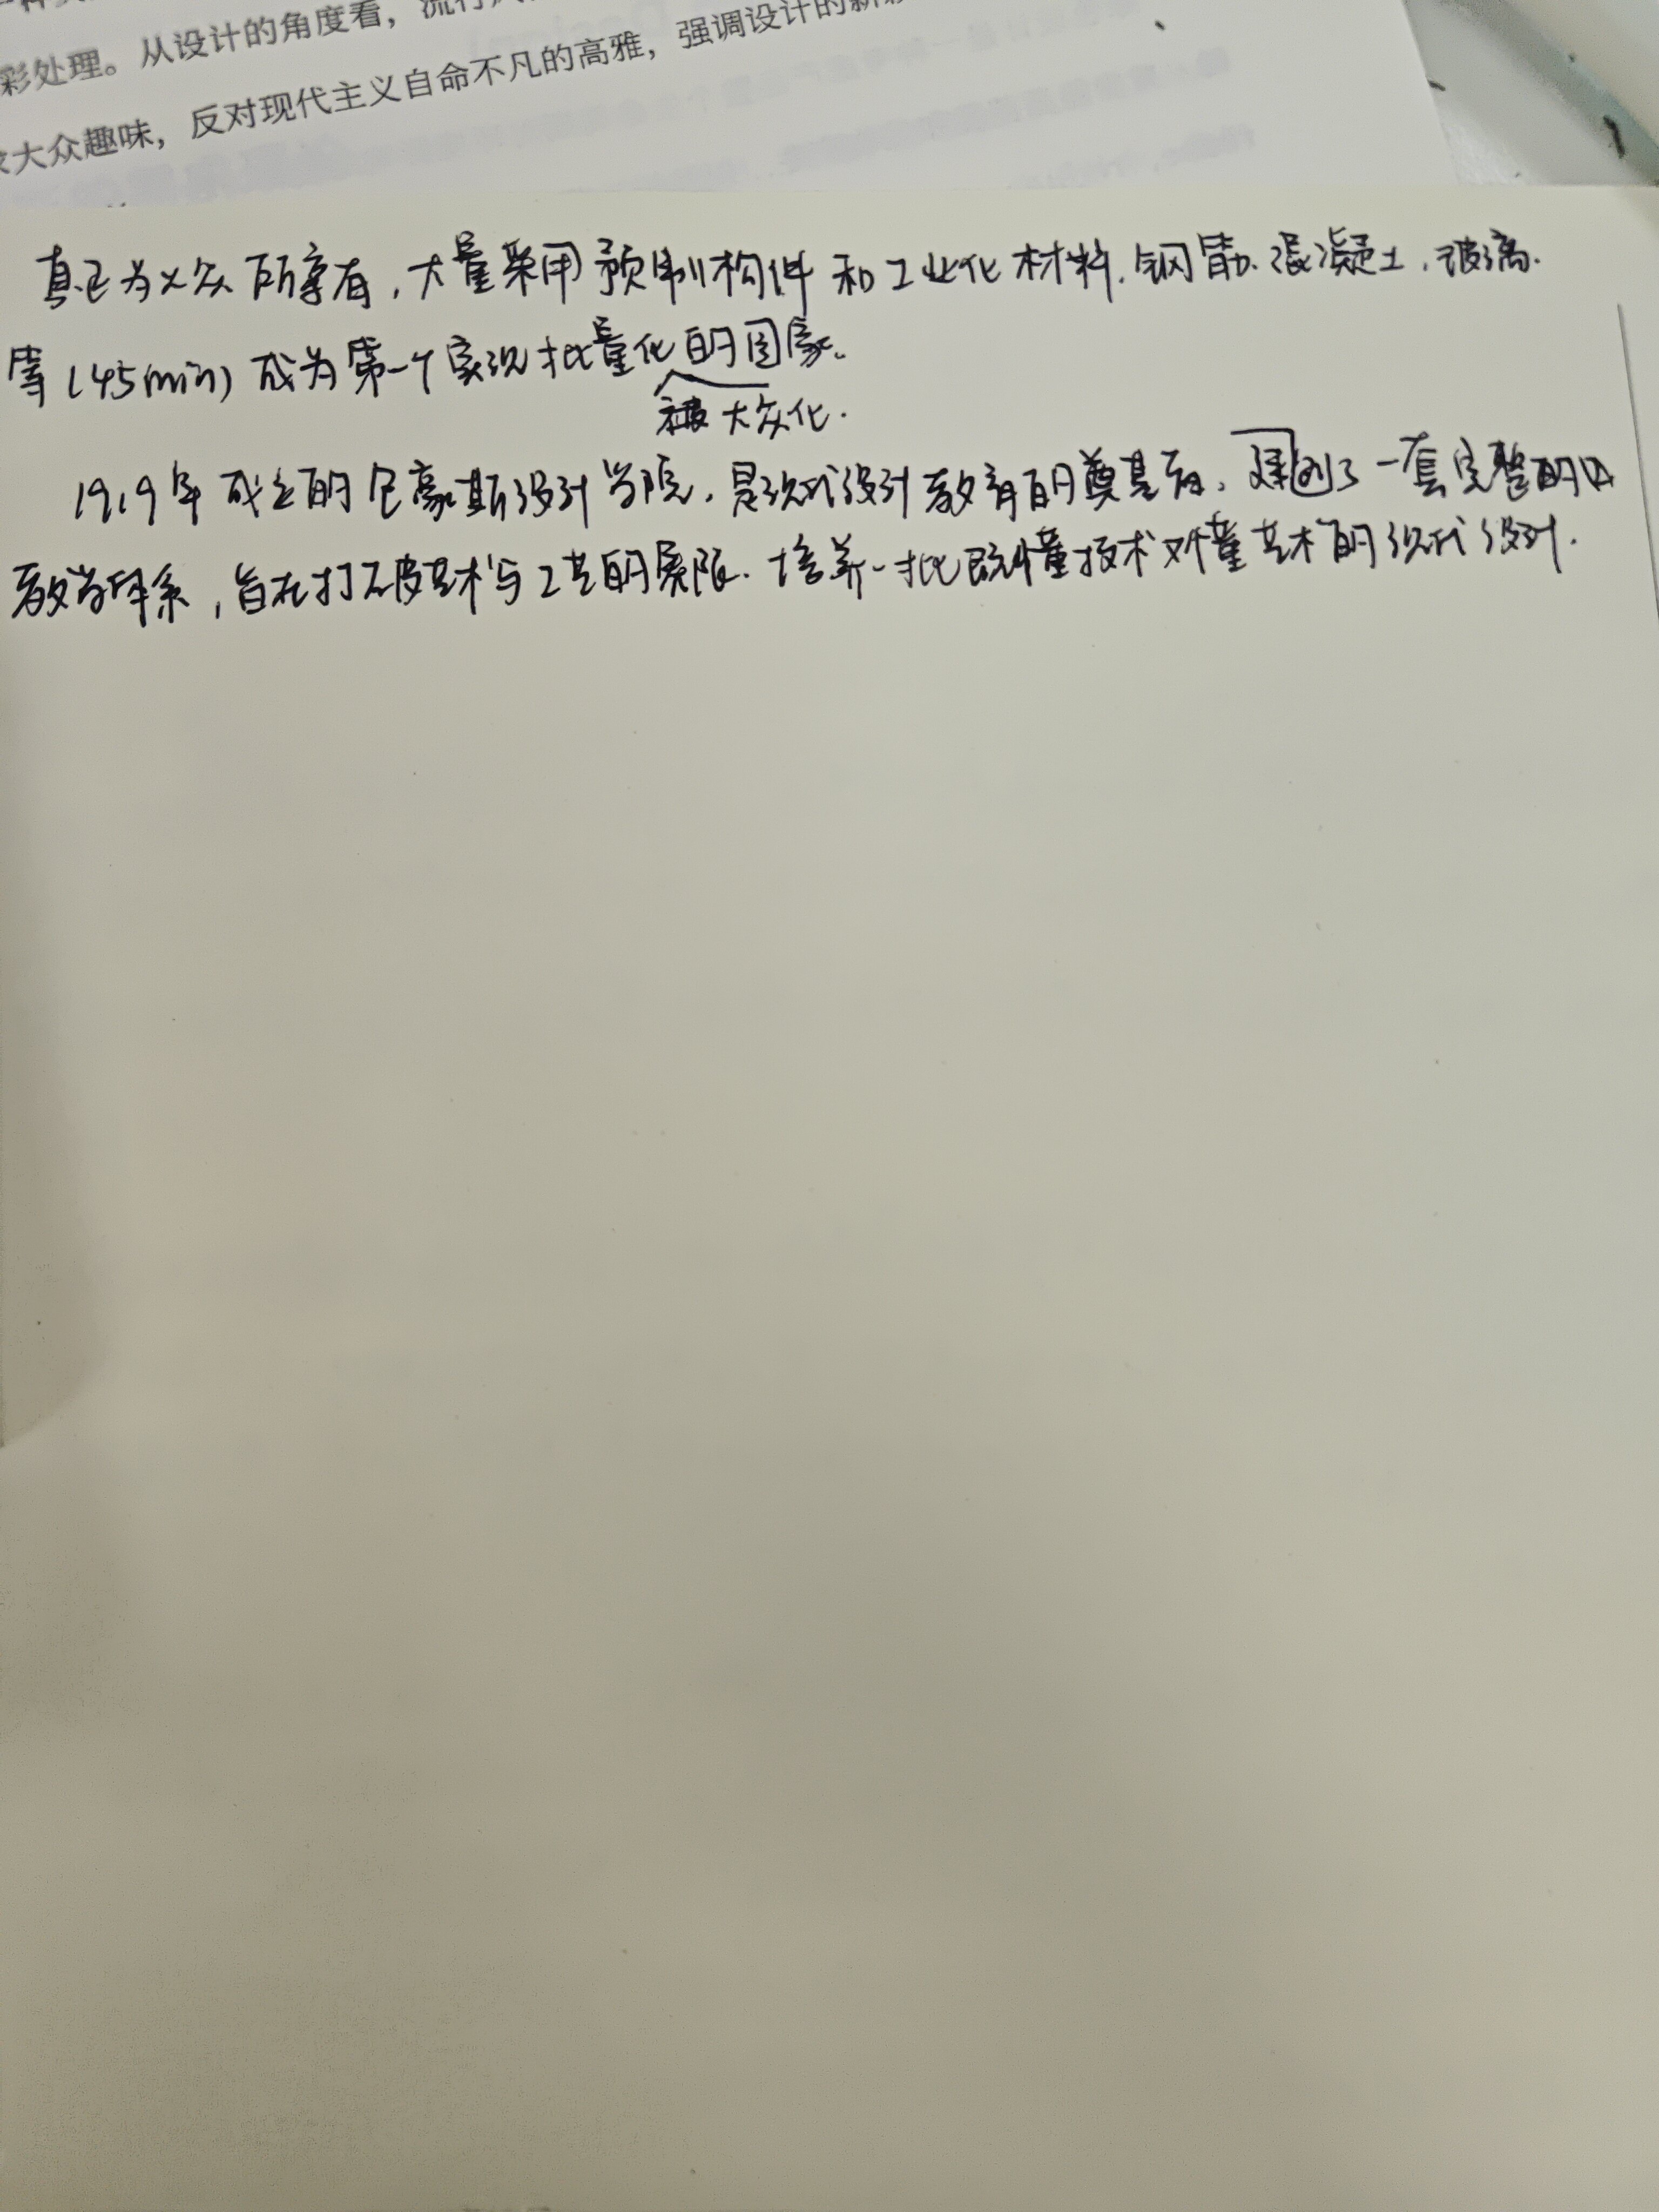 彩处理。从设计的角度看，流行
大众趣味，反对现代主义自命不凡的高雅，强调设计的新
真正为大众所享有，大量采用预制构件和工业化材料.钢筋.混凝土,玻璃.
等(45min)成为第一个实现批量化的国家。
被大众化.
1919年成立的包豪斯设计学院,是现代设计教育的奠基石,建立了一套完整的
教学体系,旨在打破艺术与工艺的界限.培养一批既懂技术又懂艺术的现代设计.